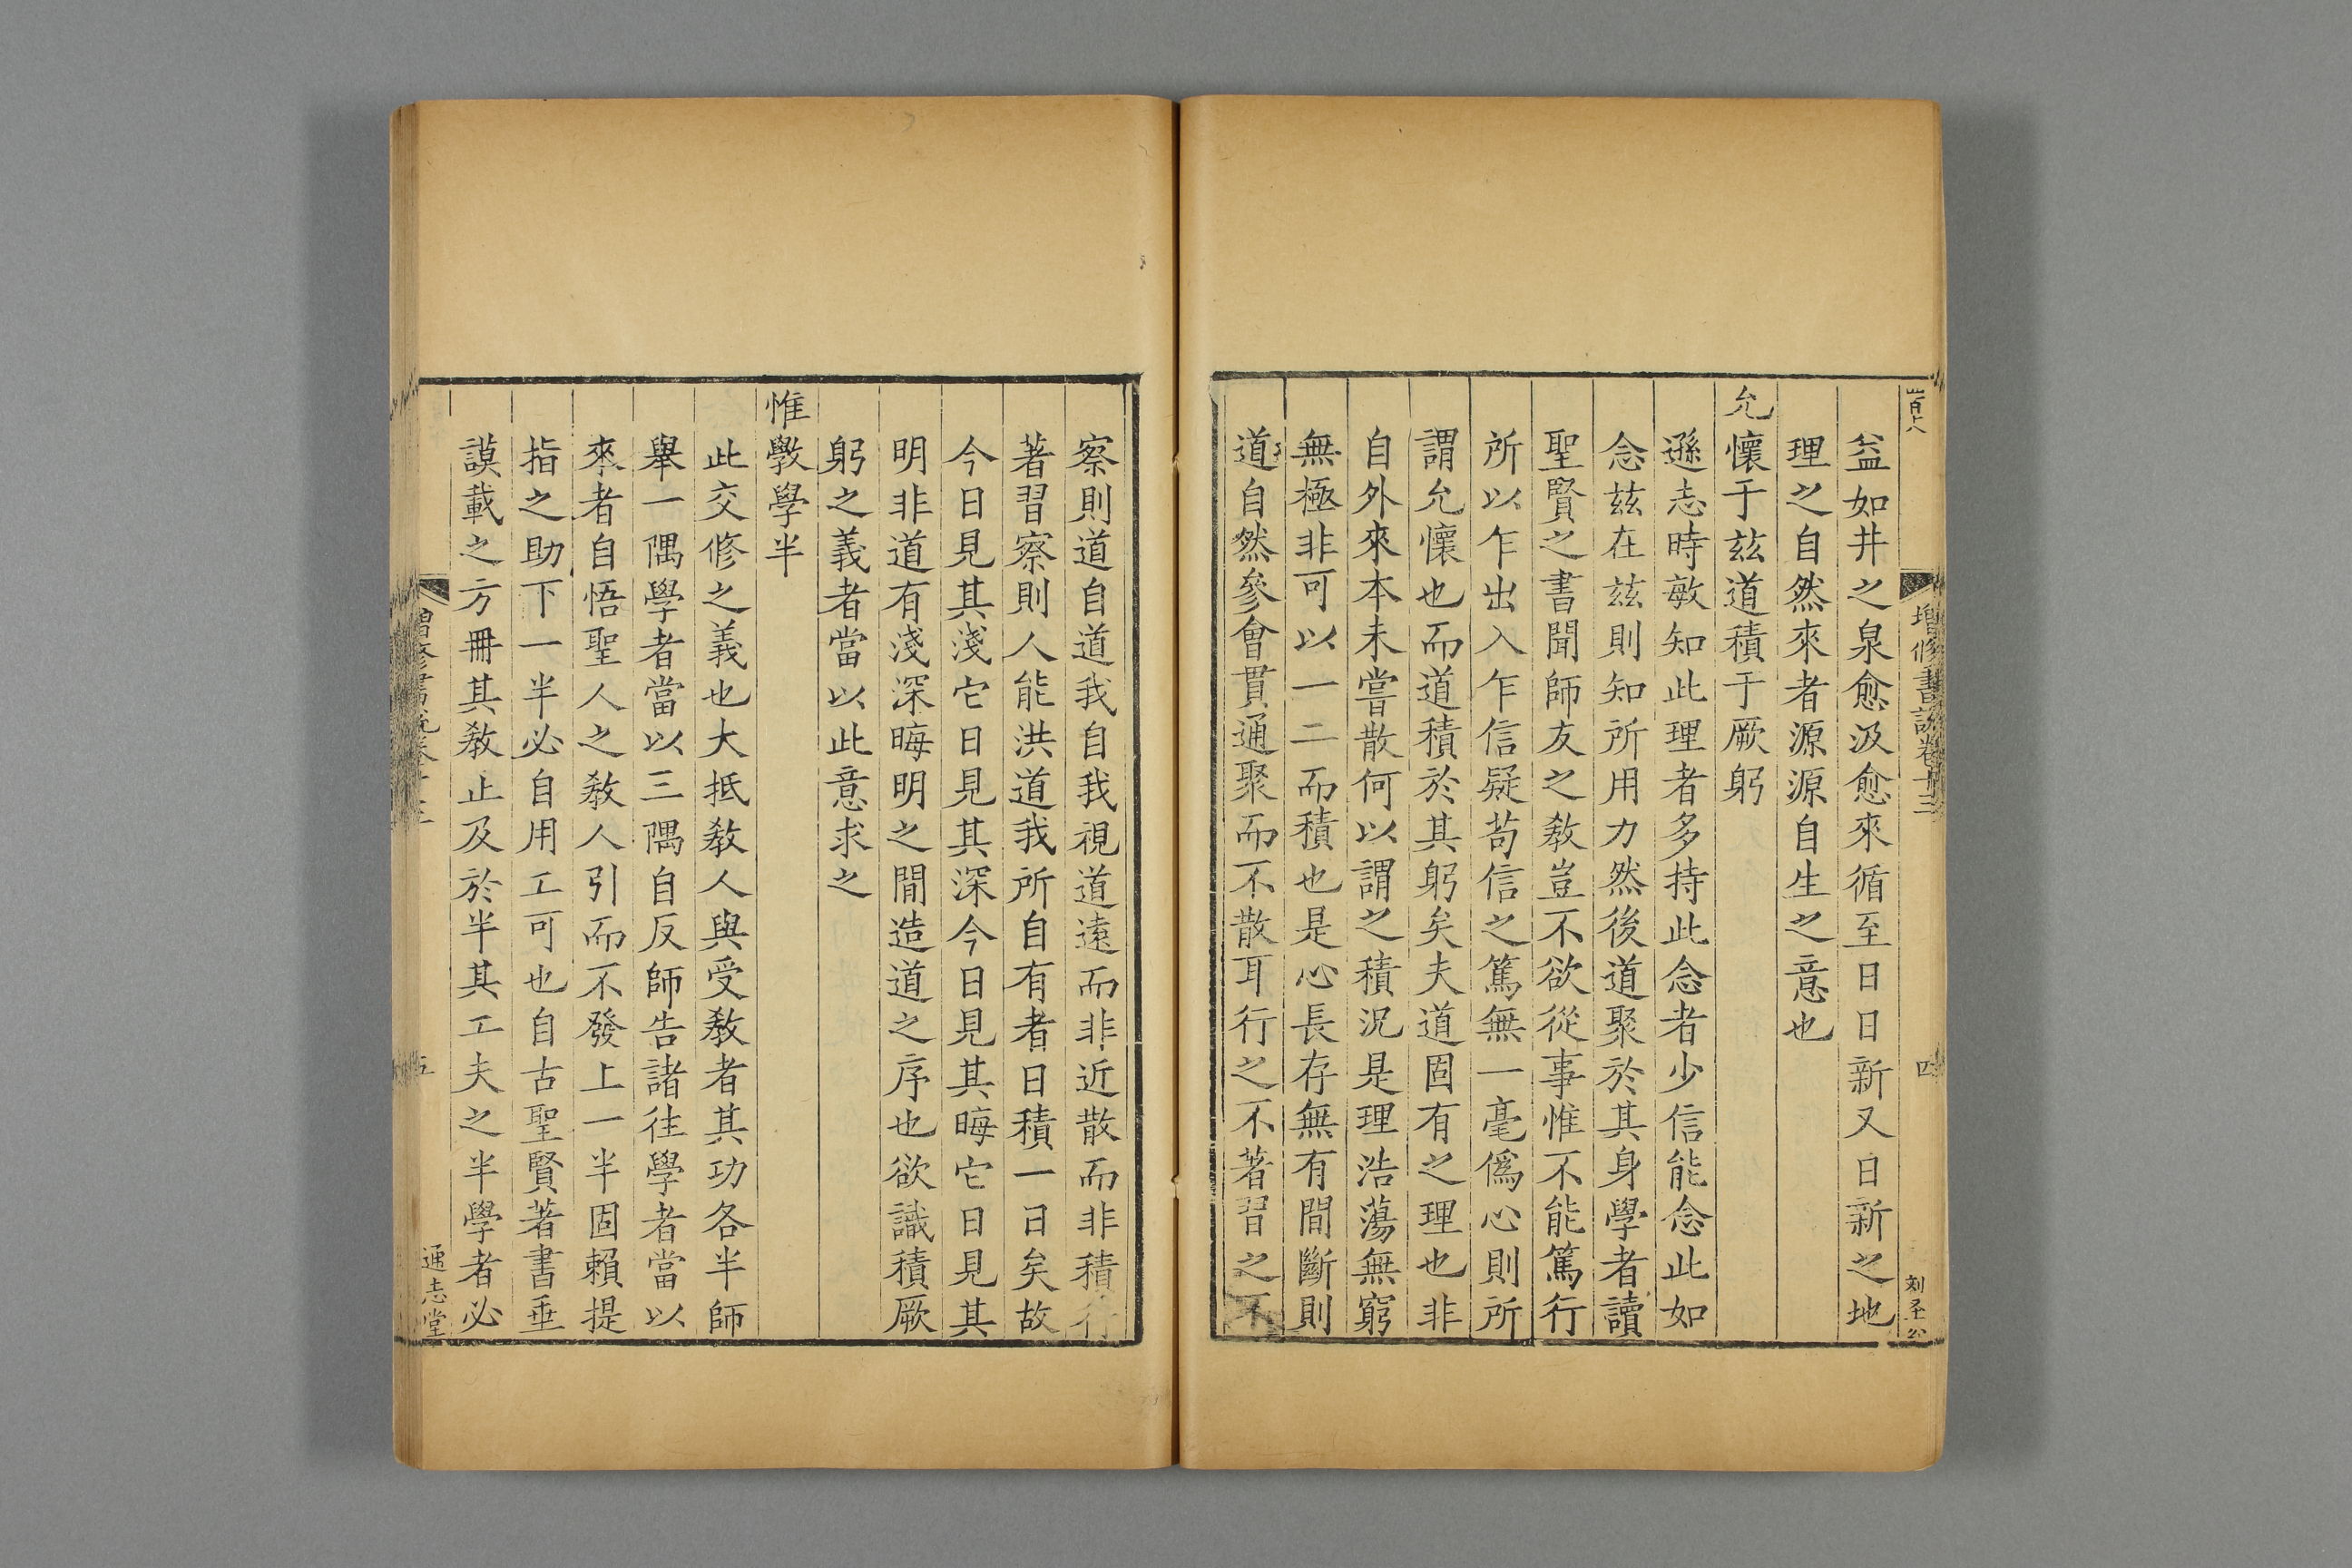 益如井之泉愈汲愈來循至日日新又日新之地
理之自然來者源源自生之意也
允懷于玆道積于厥躬
遜志時敏知此理者多持此念者少信能念此如
念玆在玆則知所用力然後道聚於其身學者讀
聖賢之書聞師友之敎豈不欲從事惟不能篤行
所以乍出入乍信疑苟信之篤無一毫僞心則所
謂允懷也而道積於其躬矣夫道固有之理也非
自外來本未嘗散何以謂之積況是理浩蕩無窮
無極非可以一二而積也是心長存無有間斷則
道自然參會貫通聚而不散耳行之不著習之不
增修書說卷十三
四
察則道自道我自我視道遠而非近散而非積行
著習察則人能洪道我所自有者日積一日矣故
今日見其淺它日見其深今日見其晦它日見其
明非道有淺深晦明之間造道之序也欲識積厥
躬之義者當以此意求之
惟斆學半
此交修之義也大抵敎人與受敎者其功各半師
舉一隅學者當以三隅自反師告諸往學者當以
來者自悟聖人之敎人引而不發上一半固賴提
指之助下一半必自用工可也自古聖賢著書垂
謨載之方冊其敎止及於半其工夫之半學者必
增修書說卷十三
五
通志堂